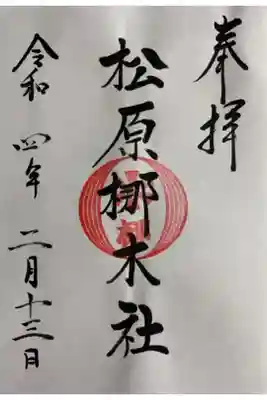 奉拝
松原梛木社
令和四年二月十三日